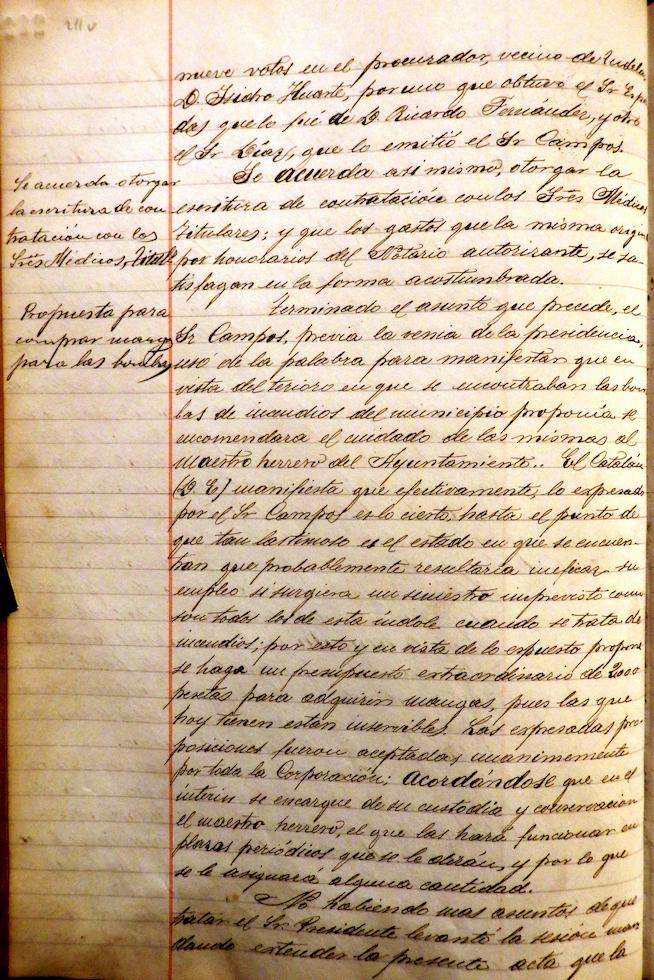 211 v
nueve votos en el procurador, vecino de Tudela
D. Isidro Huarte, por uno que obtuvo el Sr
das que lo fué de D Ricardo Fernández, y otro
el Sr Díaz, que lo emitió el Sr Campos.
Se acuerda asimismo, otorgar la
escritura de contratación con los Sres Médicos
titulares; y que los gastos que la misma origine
por honorarios del Notario autorizante, se sa-
tisfagan en la forma acostumbrada.
Se acuerda otorgar
la escritura de con
tratación con los
Sres Médicos, Titulˢ
Terminado el asunto que precede, el
Sr Campos, previa la venia de la presidencia,
usó de la palabra para manifestar que en
vista del terioro en que se encontraban las bom
bas de incendios del municipio proponía se
encomendara el cuidado de las mismas al
maestro herrero del Ayuntamiento.. El Catalán
(D. E) manifiesta que efectivamente, lo expresado
por el Sr Campos es lo cierto, hasta el punto de
que tan lastimoso es el estado en que se encuen-
tran que probablemente resultaría ineficaz su
empleo si surgiera un siniestro imprevisto como
son todos los de esta índole cuando se trata de
incendios; por esto y en vista de lo expuesto propone
se haga un presupuesto extraordinario de 2000
pesetas para adquirir mangas, pues las que
hoy tienen están inservibles. Las expresadas pro-
posiciones fueron aceptadas unanimemente
por toda la Corporación; acordándose que en el
interin se encargue de su custodia y conservación
el maestro herrero, el que las hará funcionar en
plazos periódicos que se le dirán, y por lo que
se le asignará alguna cantidad.
Propuesta para
comprar mangas
para las bombas
No habiendo mas asuntos de que
tratar el Sr. Presidente levantó la sesión man
dando extender la presente acta que la